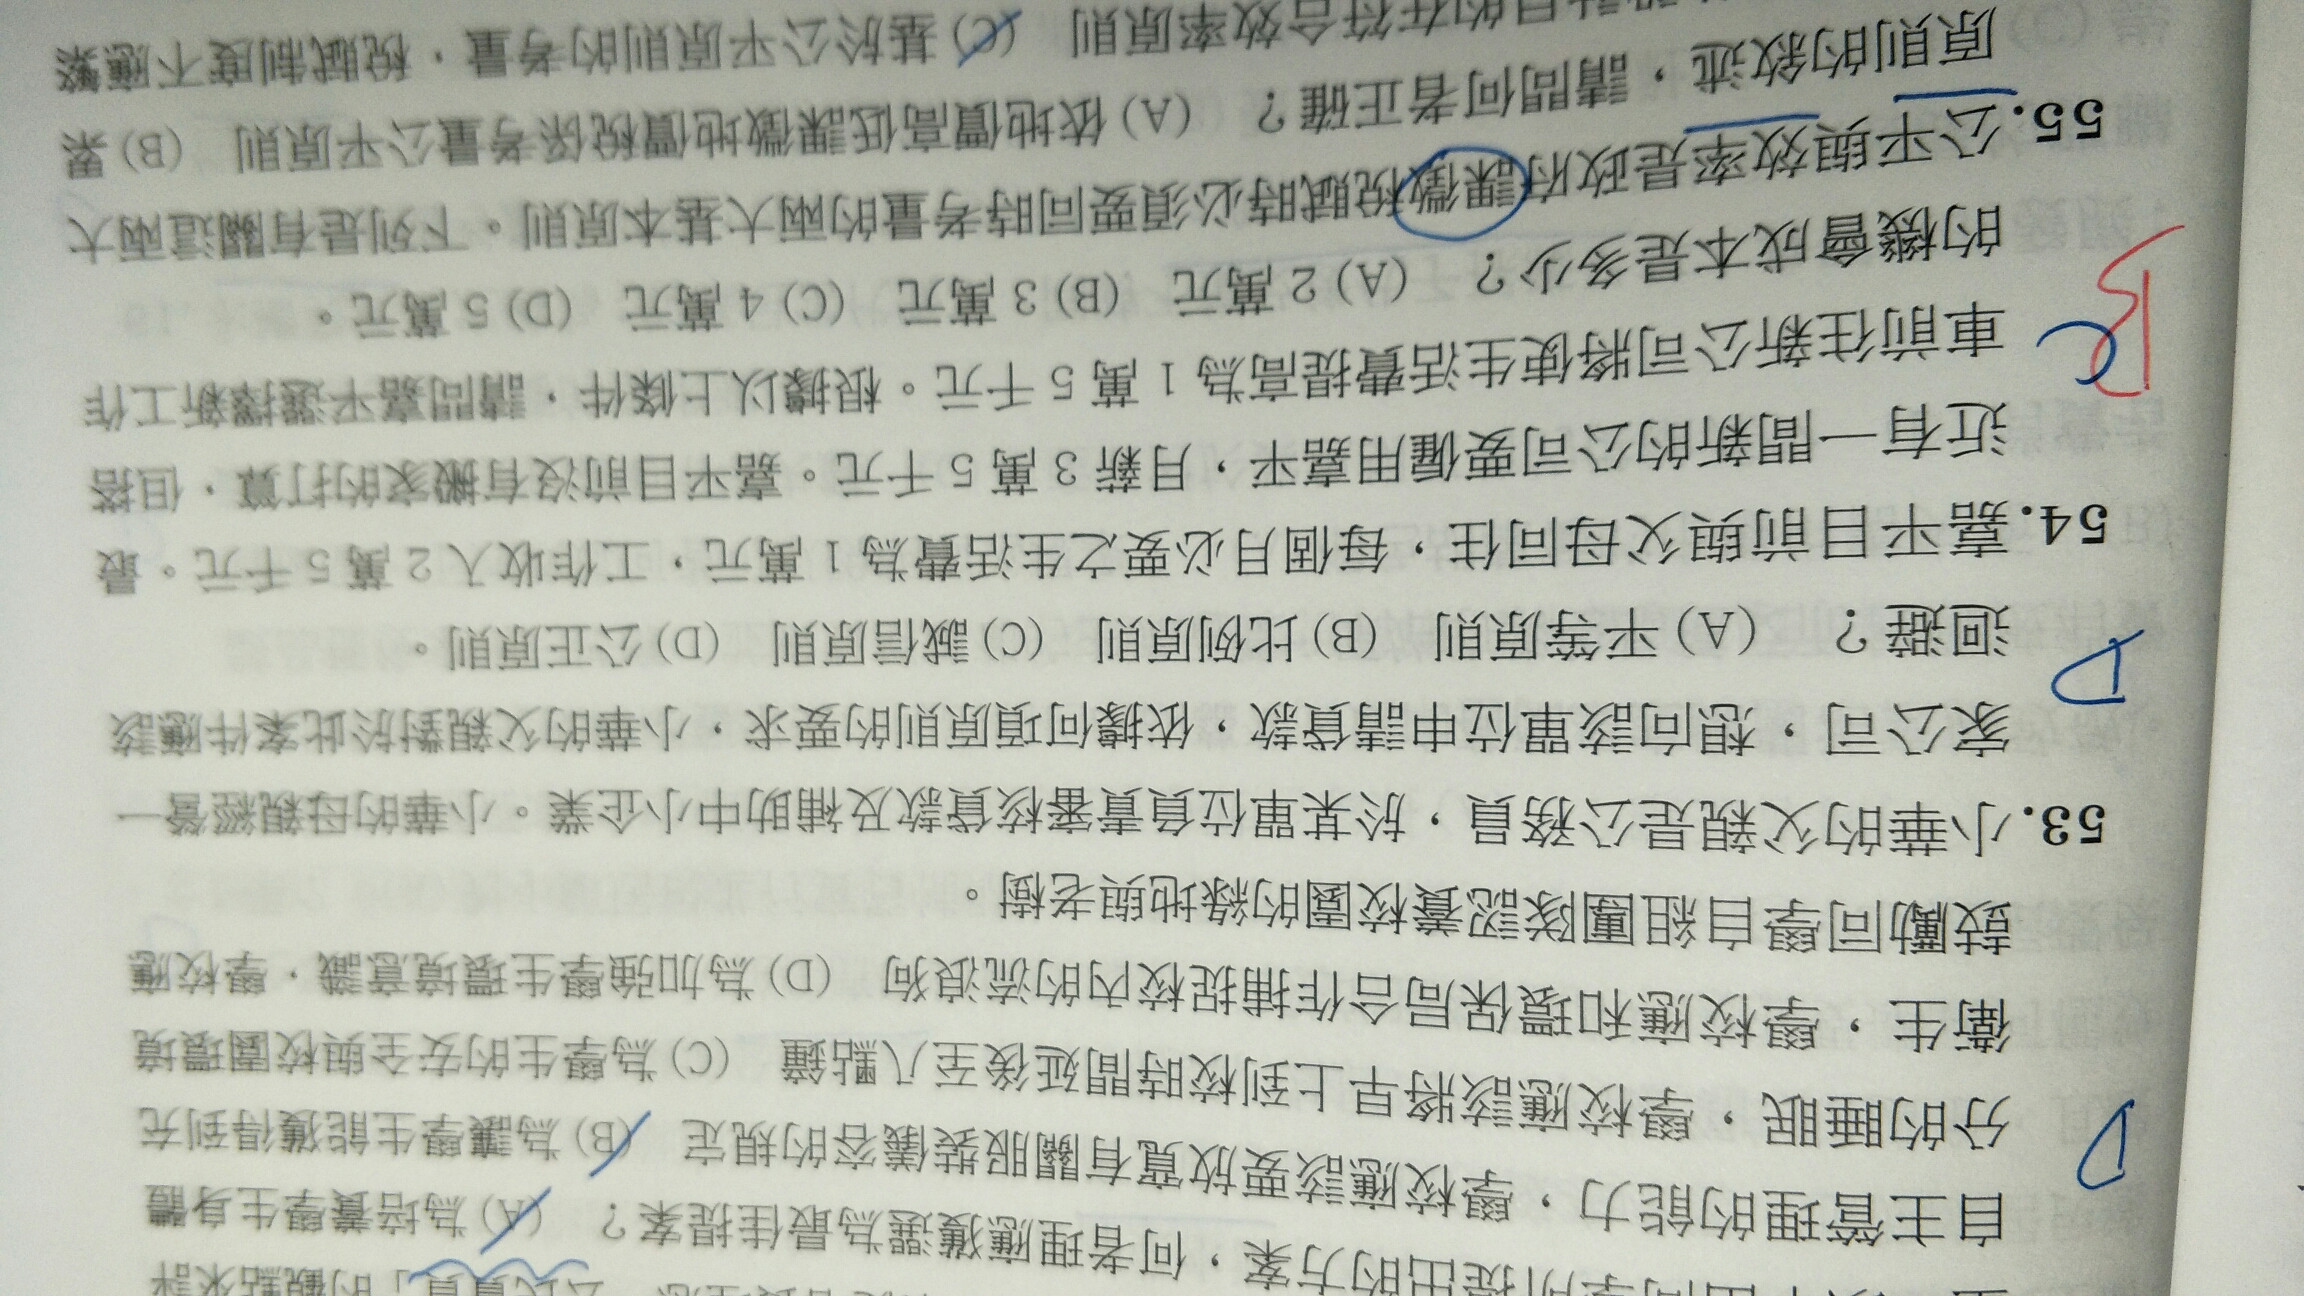 自主管理的能力，學校應該要放寬有關服裝儀容的規定　(B)為讓學生能獲得到充
分的睡眠，學校應該將早上到校時間延後至八點鐘　(C)為學生的安全與校園環境
衛生，學校應和環保局合作捕捉校內的流浪狗　(D)為加強學生環境意識，學校應
鼓勵同學自組團隊認養校園的綠地與老樹。
D
53.小華的父親是公務員，於某單位負責審核貸款及補助中小企業。小華的母親經營一
家公司，想向該單位申請貸款，依據何項原則的要求，小華的父親對於此案件應該
迴避？　(A)平等原則　(B)比例原則　(C)誠信原則　(D)公正原則。
D
54.嘉平目前與父母同住，每個月必要之生活費為 1 萬元，工作收入 2 萬 5 千元。最
近有一間新的公司要僱用嘉平，月薪 3 萬 5 千元。嘉平目前沒有搬家的打算，但搭
車前往新公司將使生活費提高為 1 萬 5 千元。根據以上條件，請問嘉平選擇新工作
的機會成本是多少？　(A) 2 萬元　(B) 3 萬元　(C) 4 萬元　(D) 5 萬元。
C
B
55.公平與效率是政府課徵稅賦時必須要同時考量的兩大基本原則。下列是有關這兩大
原則的敘述，請問何者正確？　(A)依地價高低課徵地價稅係考量公平原則　(B)累
計目的在符合效率原則　(C)基於公平原則的考量，稅賦制度不應繁